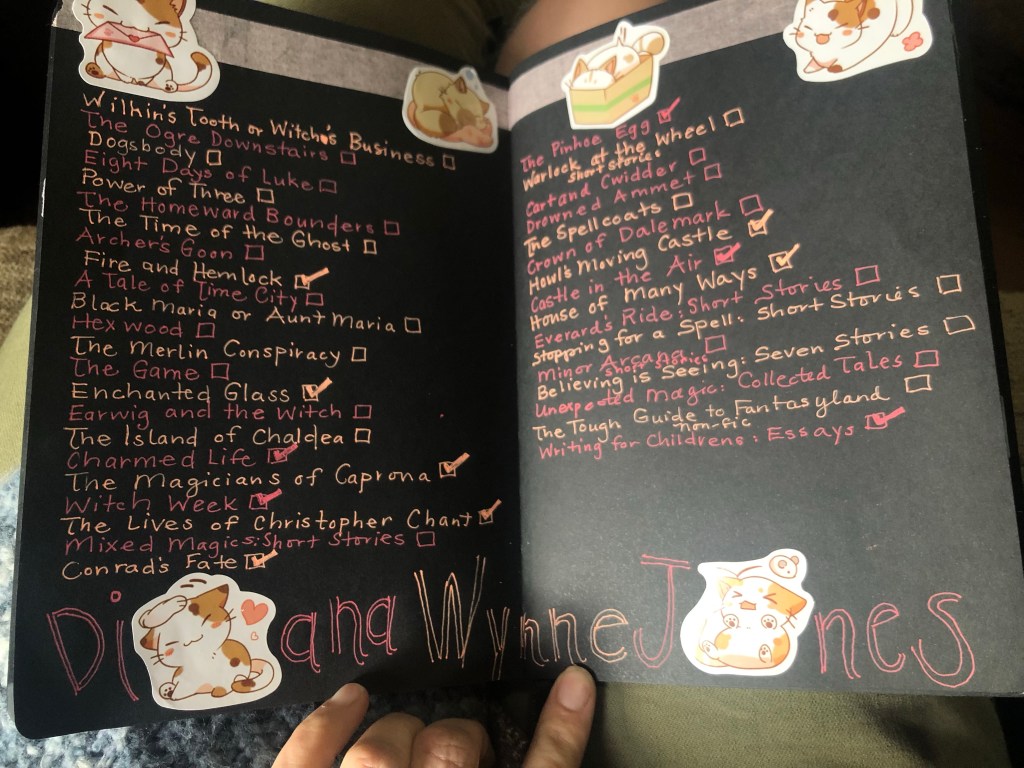 Wilkin's Tooth or Witch's Business
The Ogre Downstairs
Dogsbody
Eight Days of Luke
Power of Three
The Homeward Bounders
The Time of the Ghost
Archer's Goon
Fire and Hemlock
A Tale of Time City
Black Maria or Aunt Maria
Hexwood
The Merlin Conspiracy
The Game
Enchanted Glass
Earwig and the Witch
The Island of Chaldea
Charmed Life
The Magicians of Caprona
Witch Week
The Lives of Christopher Chant
Mixed Magics: Short Stories
Conrad's Fate
The Pinhoe Egg
Warlock at the Wheel
short stories
Cart and Cwidder
Drowned Ammet
The Spellcoats
Crown of Dalemark
Howl's Moving Castle
Castle in the Air
House of Many Ways
Everard's Ride: Short Stories
Stopping for a Spell: Short Stories
Minor Arcana
short stories
Believing is Seeing: Seven Stories
Unexpected Magic: Collected Tales
The Tough Guide to Fantasyland
non-fic
Writing for Childrens: Essays
Diana Wynne Jones